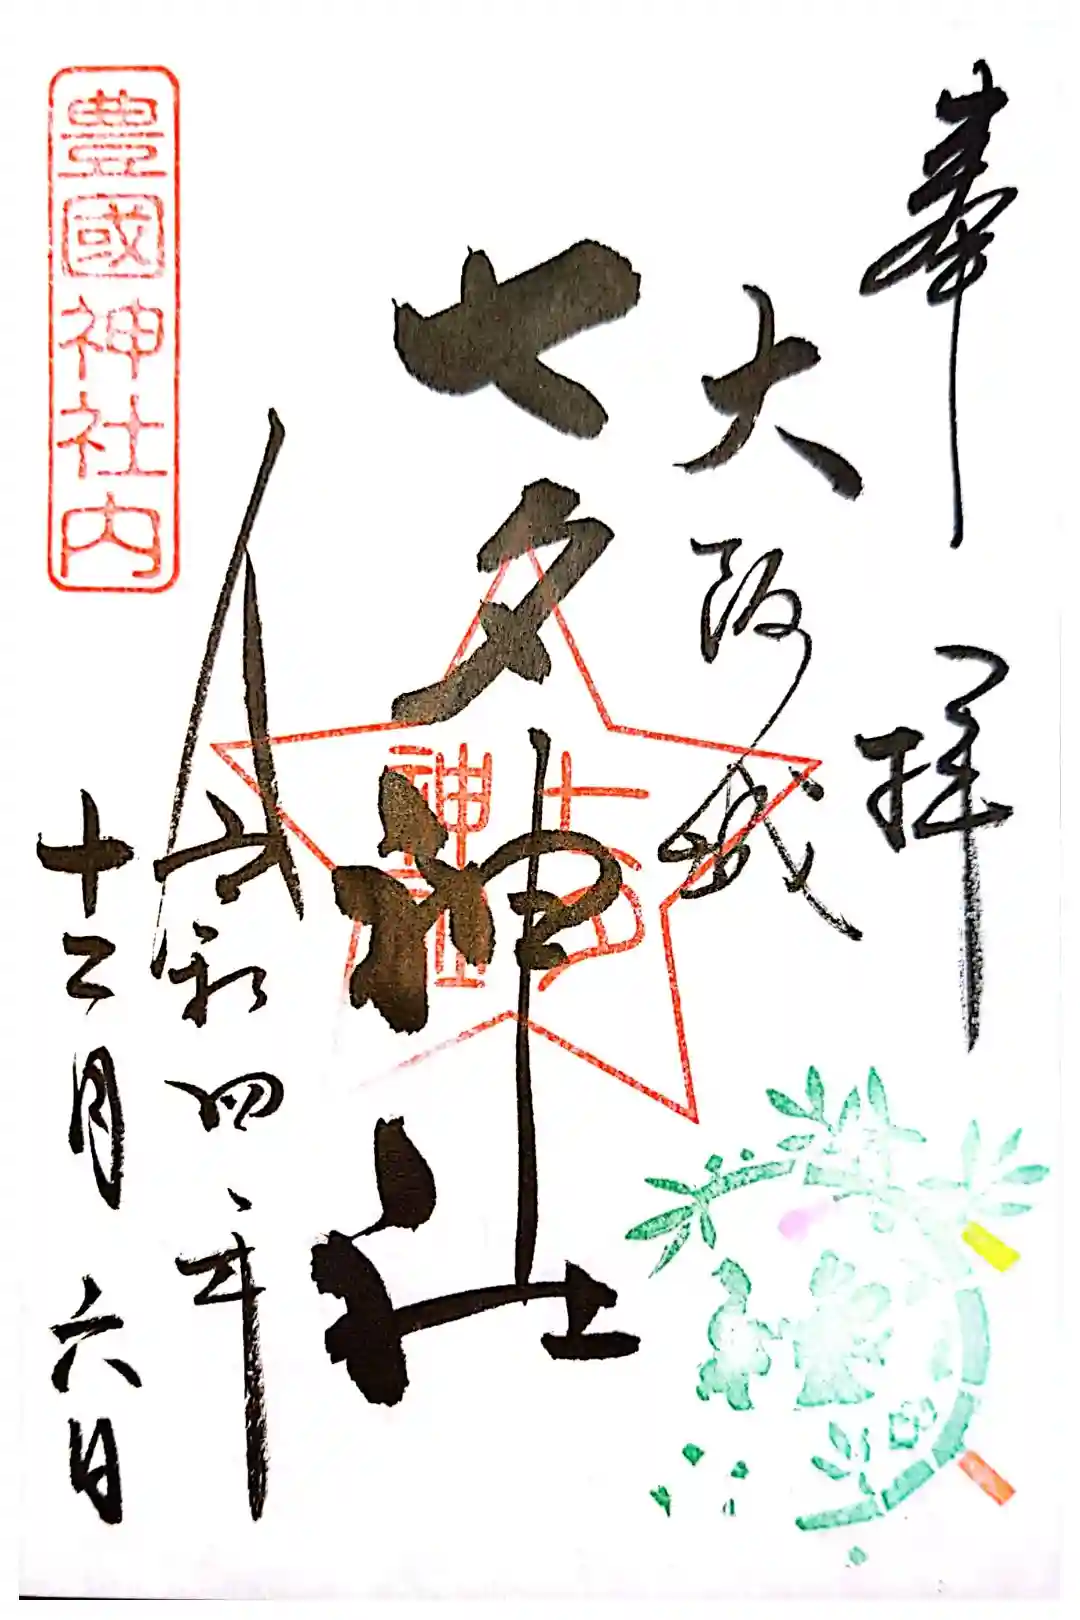 奉拝
大阪城
七夕神社
七夕
神社
令和四年
十二月六日
豊國神社内